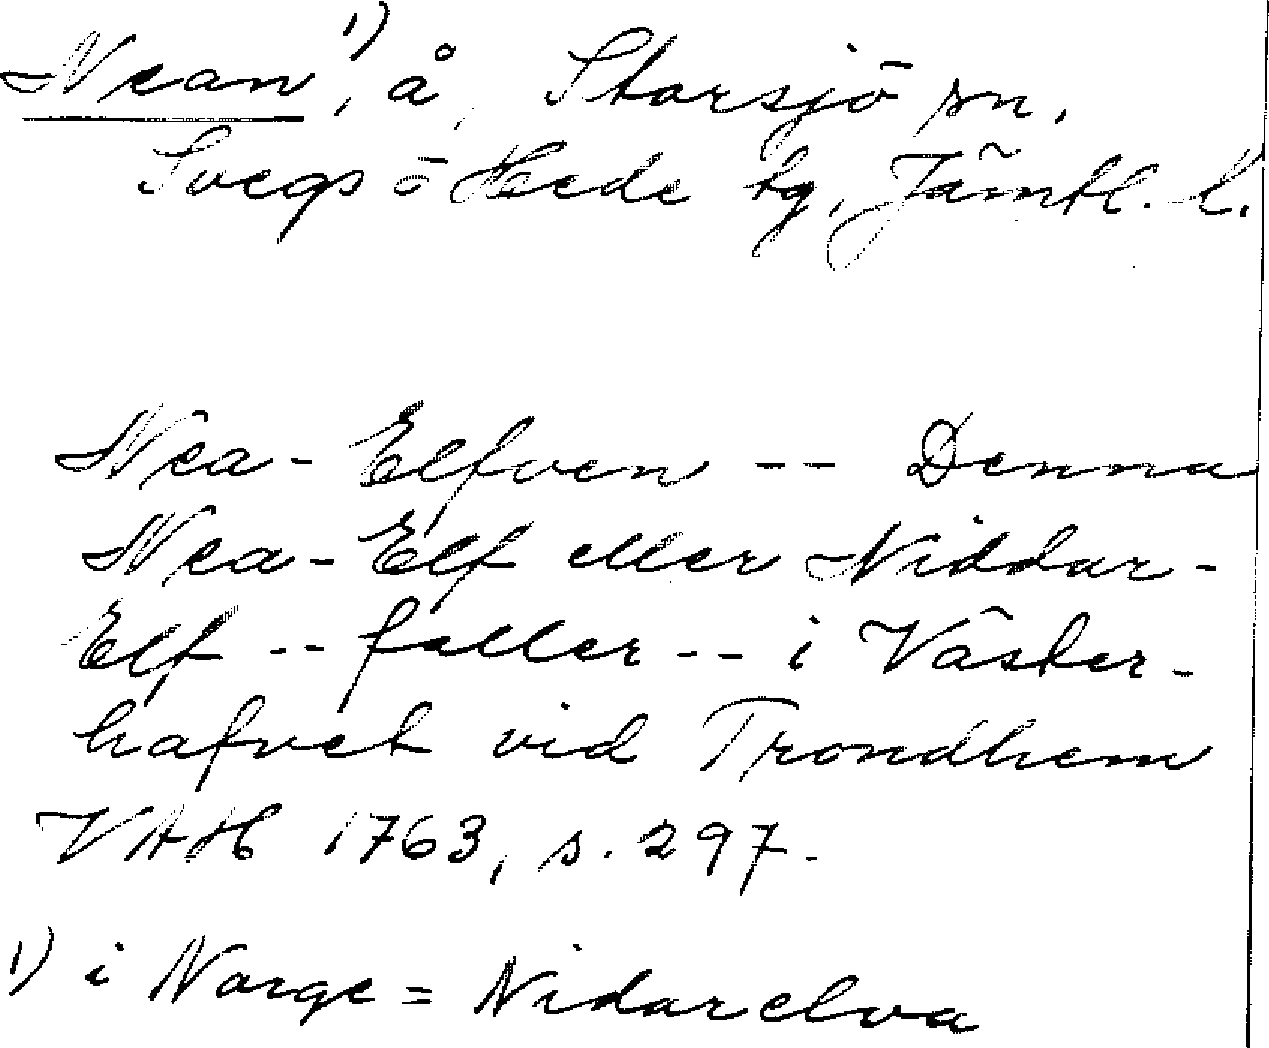 Nean ¹⁾, å, Storsjö sn,
Svegs o Hede tg, Jämtl. l.
Nea-Elfven -- Denna
Nea-Elf eller Niddar-
Elf -- faller -- i Väster-
hafvet vid Trondhem
VAH 1763, s. 297.
1) i Norge = Nidarelva